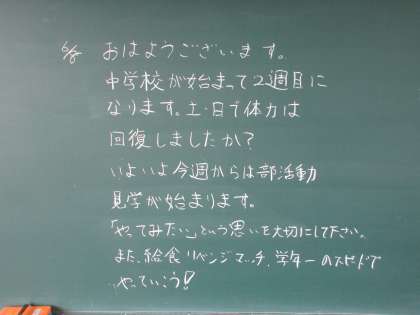 6/8 おはようございます。
中学校が始まって2週目に
なります。土・日で体力は
回復しましたか？
いよいよ今週からは部活動
見学が始まります。
「やってみたい」という思いを大切にして下さい。
また、給食リベンジマッチ、学年一のスピードで
やっていこう!